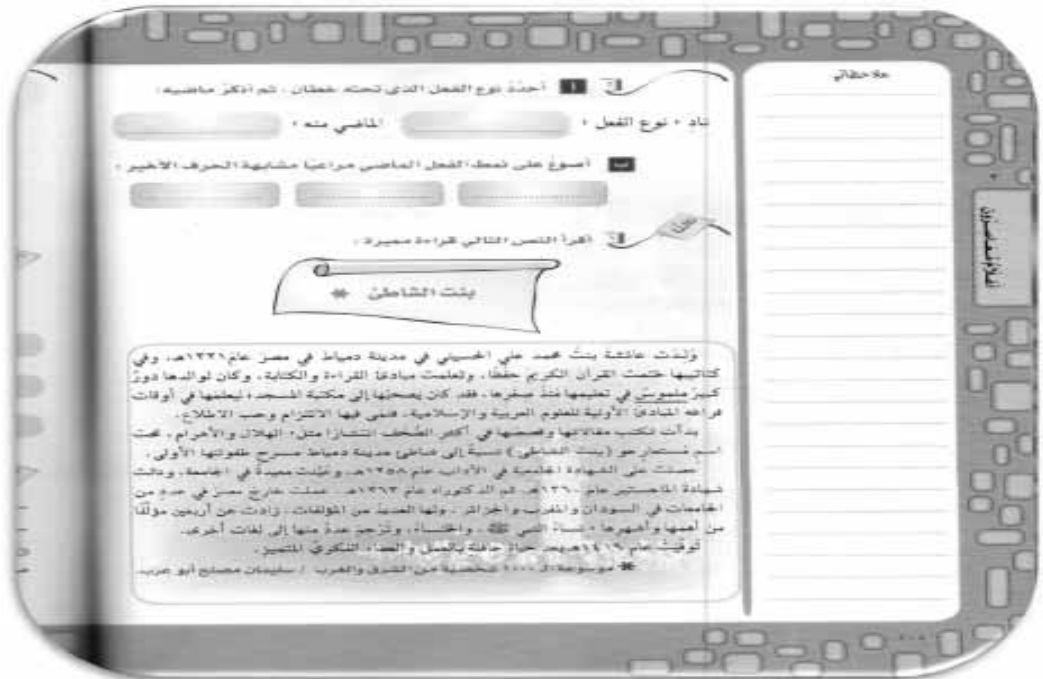 ملاحظاتي
أ أحدّد نوع الفعل الذي تحته خطان ، ثم أذكرُ ماضيه:
نادِ ، نوع الفعل : الماضي منه :
ب أصوغُ على نمط الفعل الماضي مراعيًا مشابهة الحرف الأخير :
أقرأ النص التالي قراءة معبرة :
بنت الشاطئ *
وُلدَت عائشة بنتُ محمد علي الحسيني في مدينة دمياط في مصر عام ١٣٣١هـ، وفي
كتاتيبها ختمت القرآن الكريم حفظًا، وتعلمت مبادئ القراءة والكتابة، وكان لوالدها دورٌ
كبيرٌ ملموسٌ في تعليمها منذ صغرها، فقد كان يصحبُها إلى مكتبة المسجد؛ ليعلمها في أوقات
فراغه المبادئ الأولية للعلوم العربية والإسلامية، فنمى فيها الالتزام وحب الاطلاع.
بدأت تكتب مقالاتها وقصصها في أكثر الصُّحف انتشارًا مثل: الهلال والأهرام، تحت
اسم مُستعار هو (بنت الشاطئ) نسبةً إلى شاطئ مدينة دمياط مسرح طفولتها الأولى.
حصلت على الشهادة الجامعية في الآداب عام ١٣٥٨هـ، وعُيّنت معيدةً في الجامعة، ونالت
شهادة الماجستير عام ١٣٦٠هـ، ثم الدكتوراه عام ١٣٦٣هـ. عملت خارج مصر في عددٍ من
الجامعات في السودان والمغرب والجزائر، ولها العديدُ من المؤلفات، زادت عن أربعين مؤلَّفًا
من أهمها وأشهرها : نساءُ النبي ﷺ، والخنساء، وتُرجم عددٌ منها إلى لغات أخرى.
توفيتْ عام ١٤١٩هـ بعد حياة حافلة بالعمل والعطاء الفكريِّ المتميز.
* موسوعة الـ ١٠٠٠ شخصية من الشرق والغرب / سليمان مصلح أبو عزب.